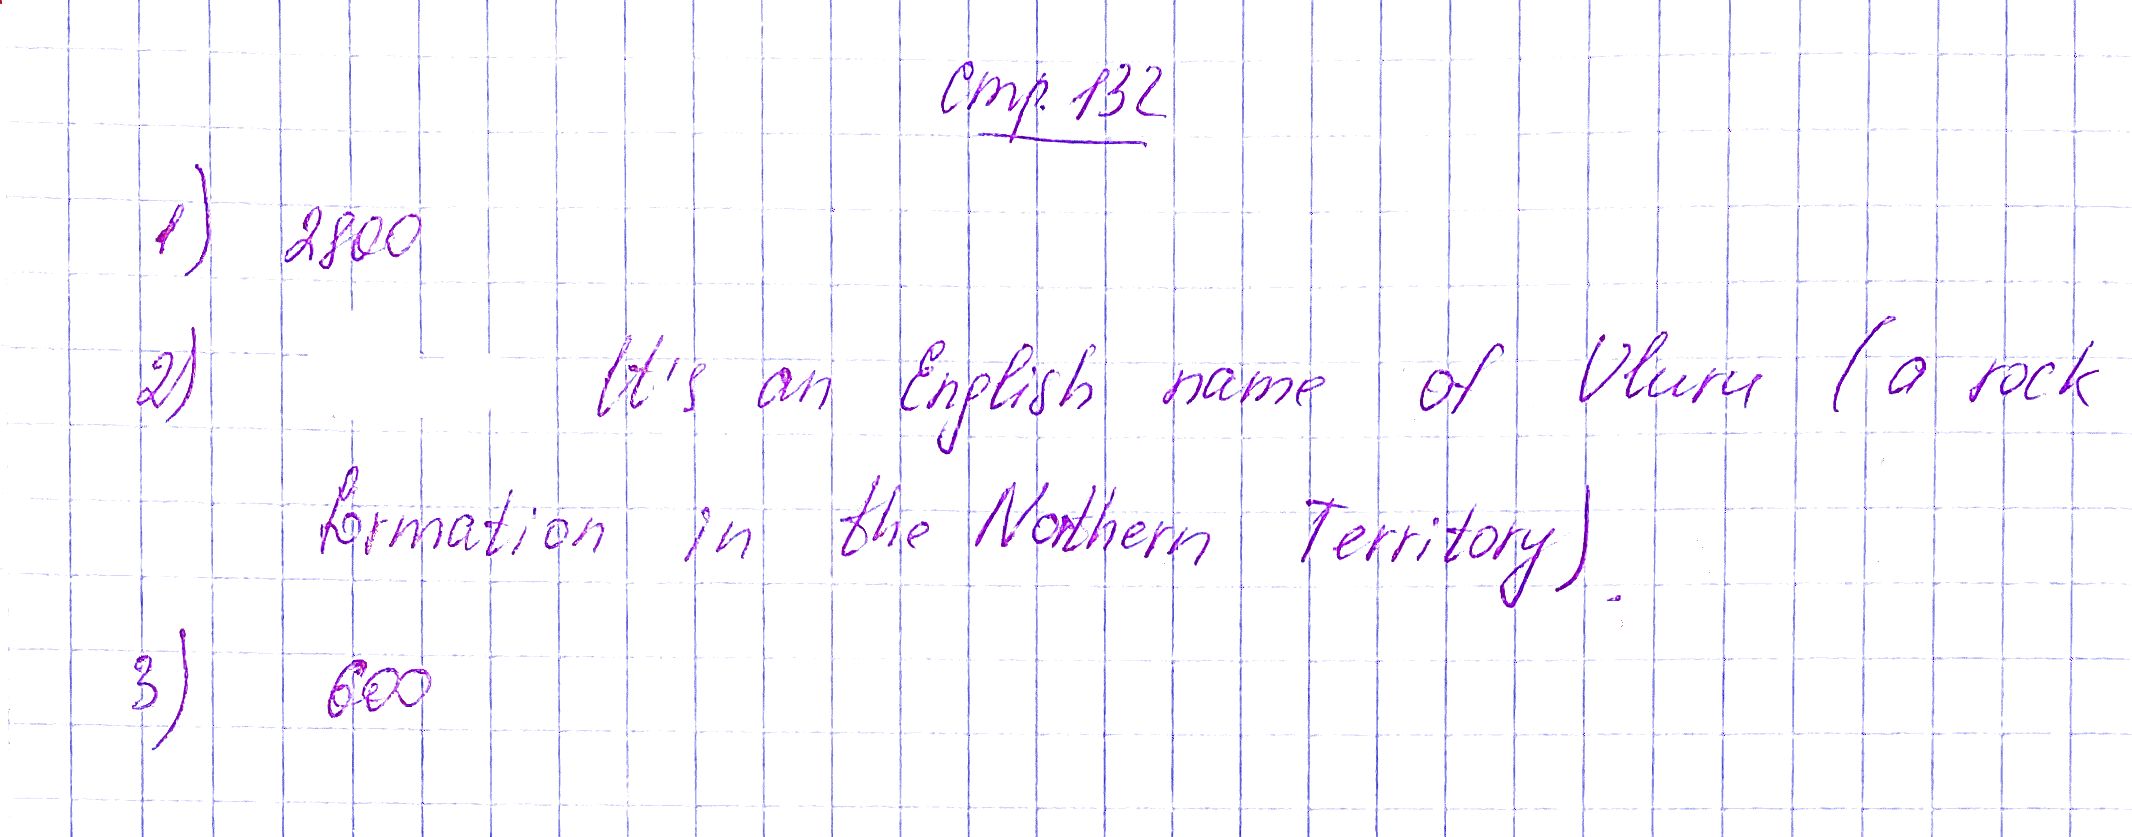 Стр. 132
1) 2800
2) It's an English name of Uluru (a rock
formation in the Northern Territory).
3) 600